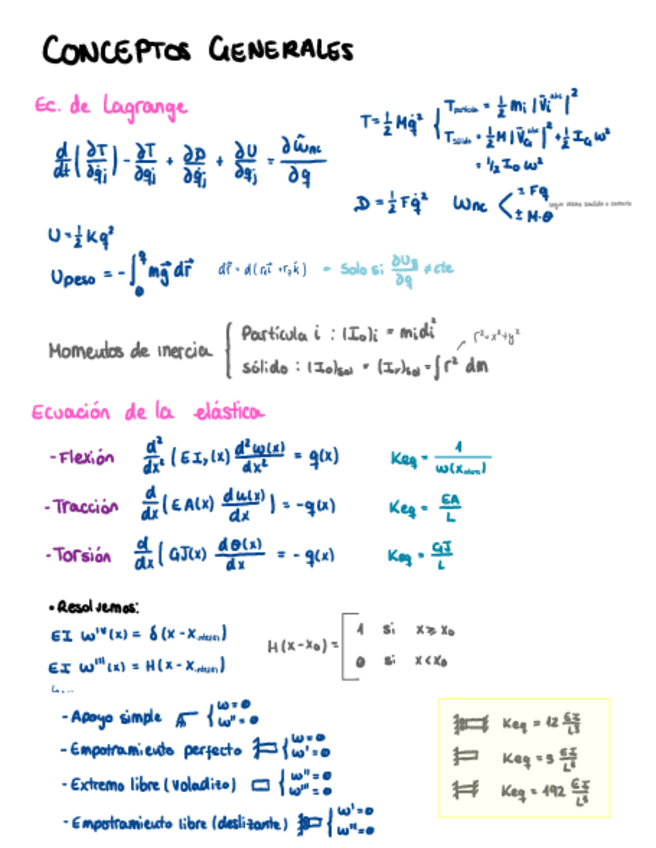 CONCEPTOS GENERALES
Ec. de Lagrange
d/dt (∂T/∂q̇j) - ∂T/∂qj + ∂D/∂q̇j + ∂U/∂qj = ∂ŵnc/∂q
T = 1/2 Mq̇² { Tpartícula = 1/2 mi |v̄i^abs|²
Tsólido = 1/2 M |v̄G^abs|² + 1/2 IG ω²
= 1/2 Io ω²
D = 1/2 Fq̇² Wnc < ± Fq
± M·θ
U = 1/2 Kq²
Upeso = - ∫₀^q mg⃗ dr⃗ dr⃗ = d(r₁i⃗ + r₂k⃗) - Solo si ∂Ug/∂q ≠ cte
Momentos de inercia { Partícula i : (Io)i = midi²
sólido : (Io)sol = (Ir)sol = ∫ r² dm r² = x² + y²
Ecuación de la elástica
- Flexión d²/dx² (EIy(x) d²w(x)/dx² = q(x) Keq = 1/w(x)
- Tracción d/dx (EA(x) du(x)/dx) = -q(x) Keq = EA/L
- Torsión d/dx (GJ(x) dθ(x)/dx = - q(x) Keq = GJ/L
• Resolvemos:
EI w^IV(x) = δ(x - x)
EI w^III(x) = H(x - x)
H(x-x₀) = [ 1 si x ≥ x₀
0 si x < x₀
↳ ...
- Apoyo simple { w = 0
w'' = 0
- Empotramiento perfecto { w = 0
w' = 0
- Extremo libre (voladizo) { w'' = 0
w''' = 0
- Empotramiento libre (deslizante) { w' = 0
w''' = 0
Keq = 12 EI/L³
Keq = 3 EI/L³
Keq = 192 EI/L³